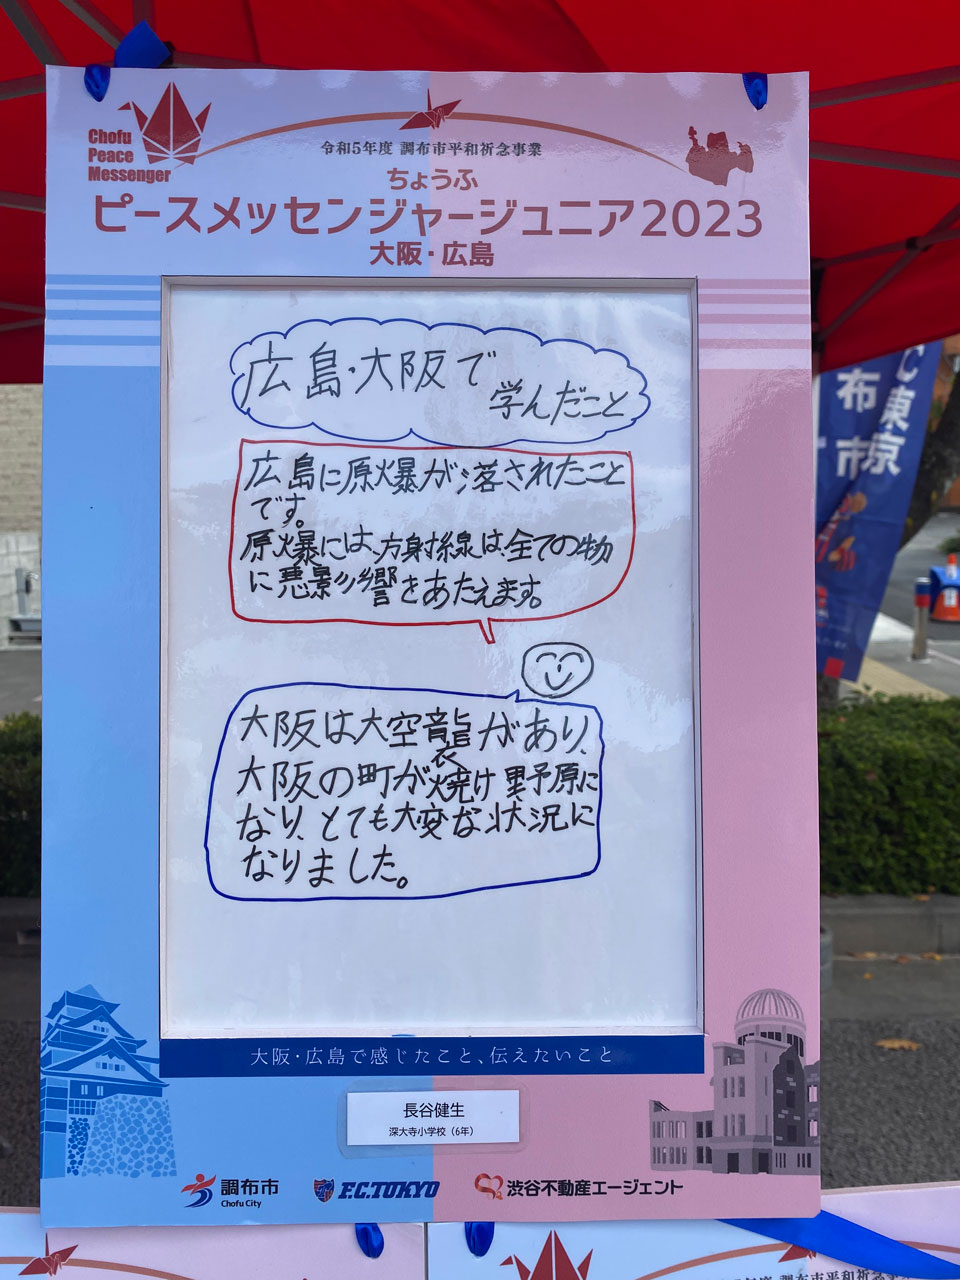 Chofu
Peace
Messenger
令和5年度 調布市平和祈念事業
ちょうふ
ピースメッセンジャージュニア2023
大阪・広島
広島・大阪で
学んだこと
広島に原爆が落されたこと
です。
原爆には、方身射線は、全ての物
に悪影響をあたえます。
大阪は大空襲があり、
大阪の町が焼け野原に
なり、とても大変な状況に
なりました。
大阪・広島で感じたこと、伝えたいこと
長谷健生
深大寺小学校（6年）
調布市
Chofu City
F.C.TOKYO
渋谷不動産エージェント
C東京
布市
年度 調布市平和祈念事業